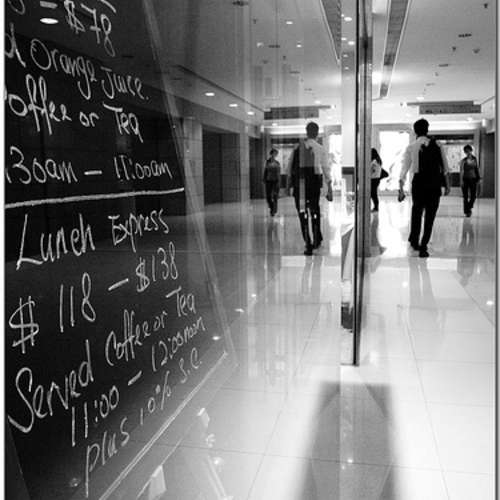 = $78
Orange Juice
Coffee or Tea
:30am – 11:00am
Lunch Express
$ 118 – $138
Served Coffee or Tea
11:00 – 12:00noon
plus 10% s.c.